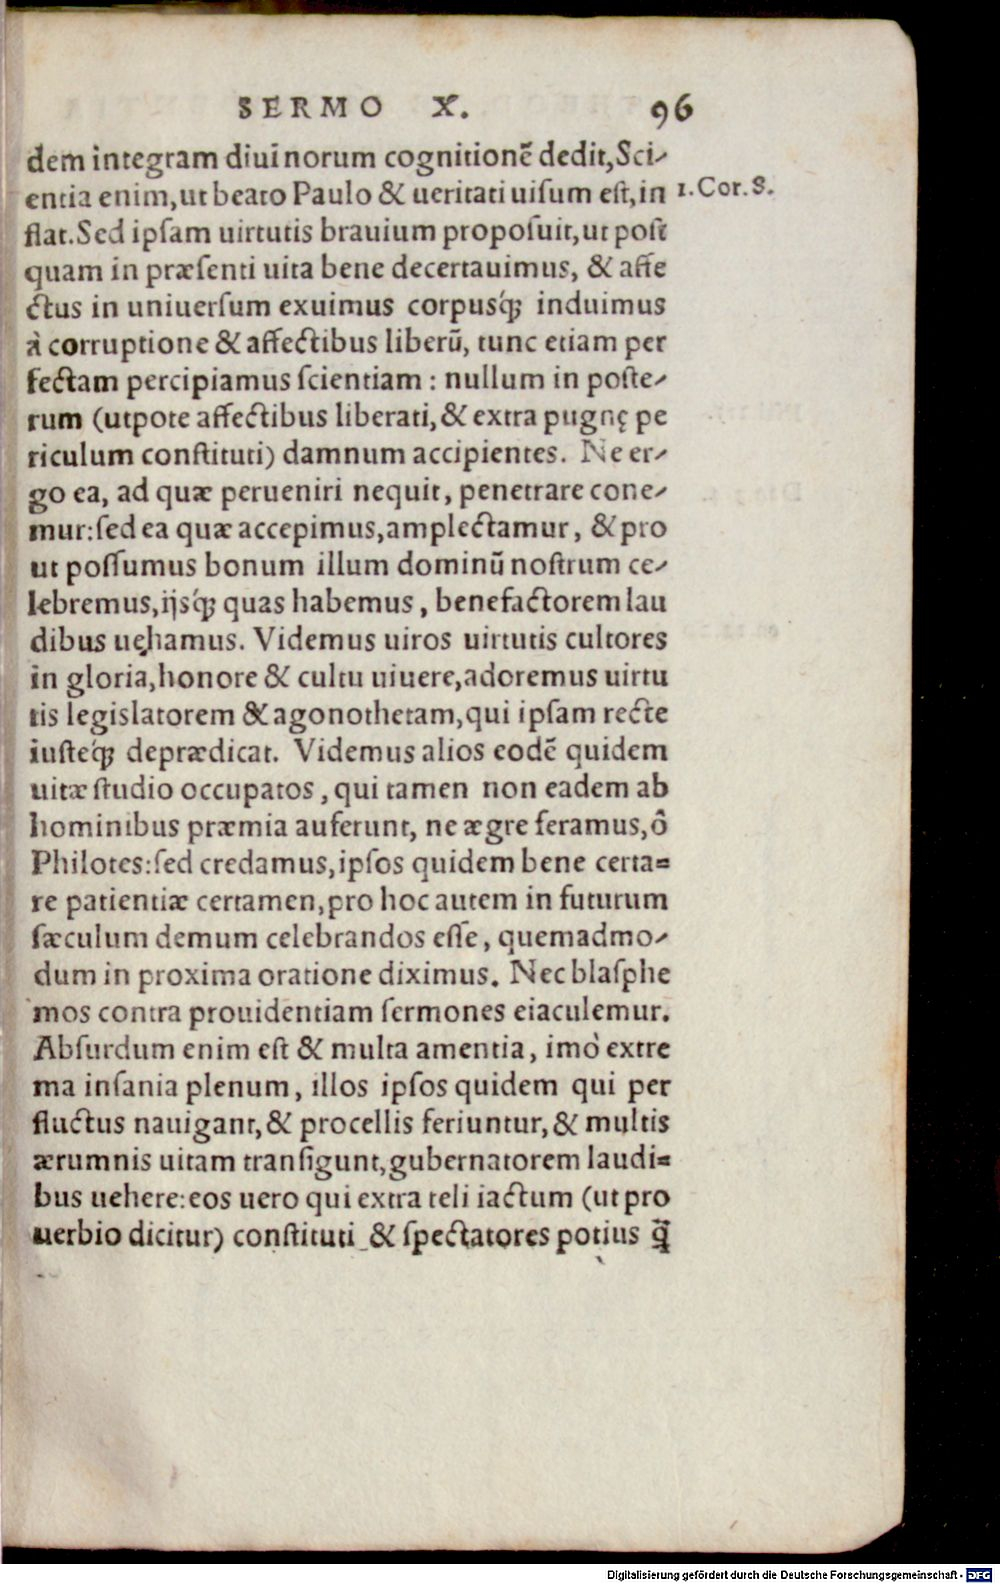 SERMO X. 96
dem integram diuinorum cognitionẽ dedit, Sci-
entia enim, ut beato Paulo & ueritati uisum est, in
1. Cor. 8.
flat. Sed ipsam uirtutis brauium proposuit, ut post
quam in præsenti uita bene decertauimus, & affe
ctus in uniuersum exuimus corpusq́; induimus
à corruptione & affectibus liberũ, tunc etiam per
fectam percipiamus scientiam: nullum in poste-
rum (utpote affectibus liberati, & extra pugnę pe
riculum constituti) damnum accipientes. Ne er-
go ea, ad quæ perueniri nequit, penetrare cone-
mur: sed ea quæ accepimus, amplectamur, & pro
ut possumus bonum illum dominũ nostrum ce-
lebremus, ijsq́; quas habemus, benefactorem lau
dibus uehamus. Videmus uiros uirtutis cultores
in gloria, honore & cultu uiuere, adoremus uirtu
tis legislatorem & agonothetam, qui ipsam recte
iusteq́; deprædicat. Videmus alios eodẽ quidem
uitæ studio occupatos, qui tamen non eadem ab
hominibus præmia auferunt, ne ægre feramus, ô
Philotes: sed credamus, ipsos quidem bene certa=
re patientiæ certamen, pro hoc autem in futurum
sæculum demum celebrandos esse, quemadmo-
dum in proxima oratione diximus. Nec blasphe
mos contra prouidentiam sermones eiaculemur.
Absurdum enim est & multa amentia, imò extre
ma insania plenum, illos ipsos quidem qui per
fluctus nauigant, & procellis feriuntur, & multis
ærumnis uitam transigunt, gubernatorem laudi=
bus uehere: eos uero qui extra teli iactum (ut pro
uerbio dicitur) constituti & spectatores potius q̃
Digitalisierung gefördert durch die Deutsche Forschungsgemeinschaft - DFG